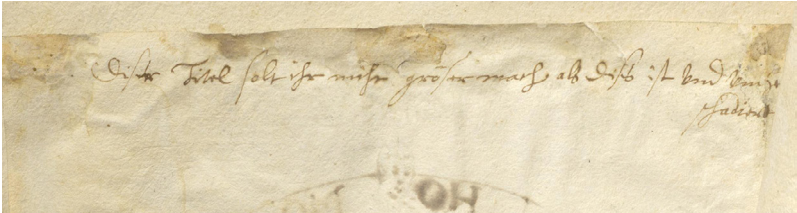 Diser Titel solt ihr nicht gröser mach als diss ist und
schadiert
HO